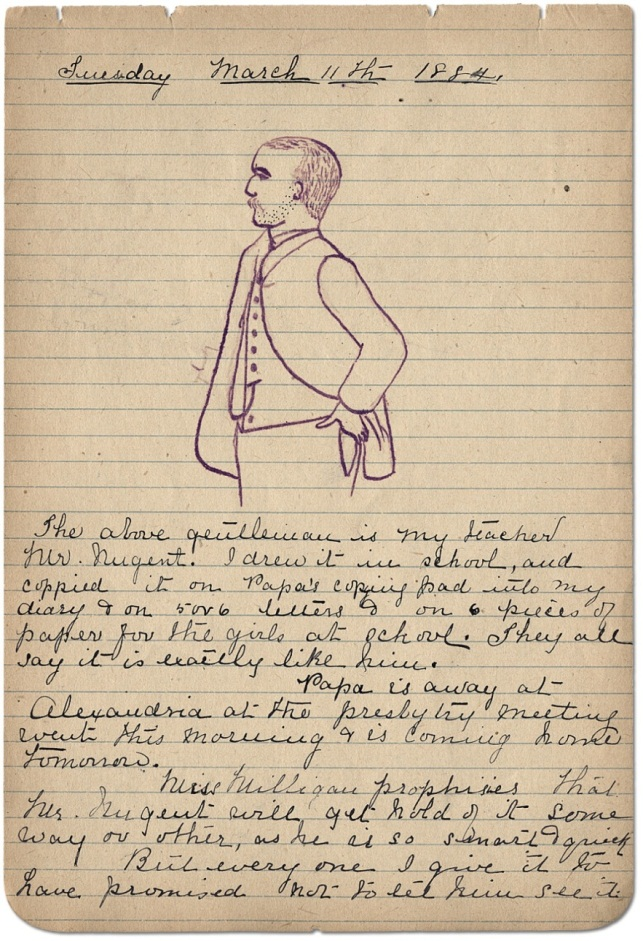 Tuesday March 11th 1884.
The above gentleman is my teacher
Mr. Nugent. I drew it in school, and
coppied it on Papa's copying pad into my
diary & on 5 or 6 letters & on 6 pieces of
paper for the girls at school. They all
say it is exactly like him.
Papa is away at
Alexandria at the presbytry meeting
went this morning & is coming home
tomorrow.
Miss Milligan prophises that
Mr. Nugent will get hold of it some
way or other, as he is so smart & quick
But every one I give it to
have promised not to let him see it.